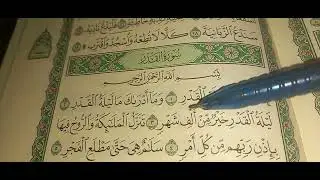 سَنَدْعُ الزَّبَانِيَةَ ۝ كَلَّا لَا تُطِعْهُ وَاسْجُدْ وَاقْتَرِب ۝
سُورَةُ الْقَدْرِ
بِسْمِ اللَّهِ الرَّحْمَٰنِ الرَّحِيمِ
الْقَدْرِ ۝ وَمَا أَدْرَىٰكَ مَا لَيْلَةُ الْقَدْرِ ۝
لَيْلَةُ الْقَدْرِ خَيْرٌ مِّنْ أَلْفِ شَهْرٍ ۝ تَنَزَّلُ الْمَلَٰئِكَةُ وَالرُّوحُ فِيهَا
بِإِذْنِ رَبِّهِم مِّن كُلِّ أَمْرٍ ۝ سَلَٰمٌ هِيَ حَتَّىٰ مَطْلَعِ الْفَجْرِ ۝